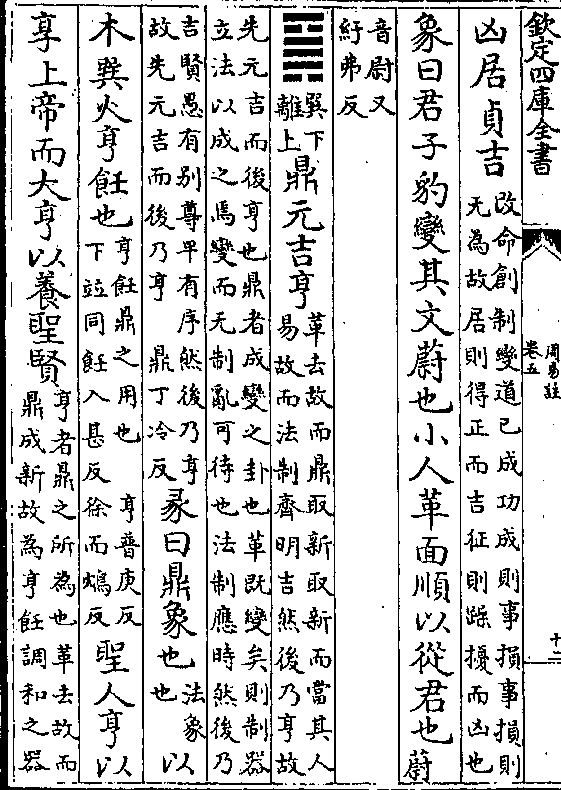 欽定四庫全書
周易註
卷五
十二
凶居貞吉
改命創制變道已成功成則事損事損則
无為故居則得正而吉征則躁擾而凶也
象曰君子豹變其文蔚也小人革面順以從君也
蔚
音尉又
紓弗反
䷱
巽下
離上
鼎元吉亨
革去故而鼎取新取新而當其人
易故而法制齊明吉然後乃亨故
先元吉而後亨也鼎者成變之卦也革既變矣則制器
立法以成之焉變而无制亂可待也法制應時然後乃
吉賢愚有别尊卑有序然後乃亨
故先元吉而後乃亨 鼎丁冷反
彖曰鼎象也
法象
也
以
木巽火亨飪也
亨飪鼎之用也 亨普庚反
下竝同飪入甚反徐而鴆反
聖人亨以
享上帝而大亨以養聖賢
亨者鼎之所為也革去故而
鼎成新故為亨飪調和之器